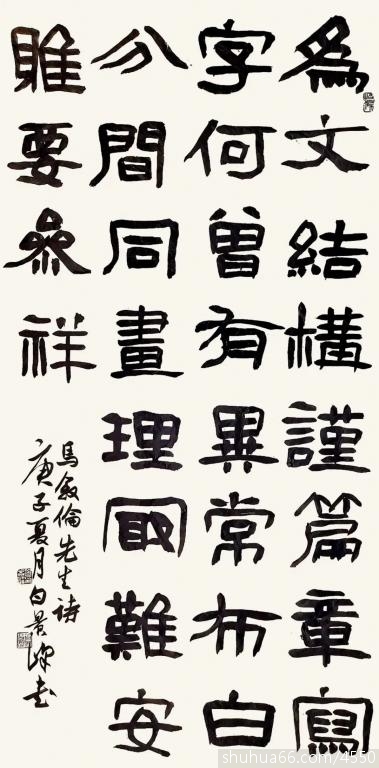 為文結構謹篇章寫
字何曾有異常布白
分間同畫理冣難安
雎要參祥
馬敘倫先生詩
庚子夏月白景峰書
shuhua66.com/4550